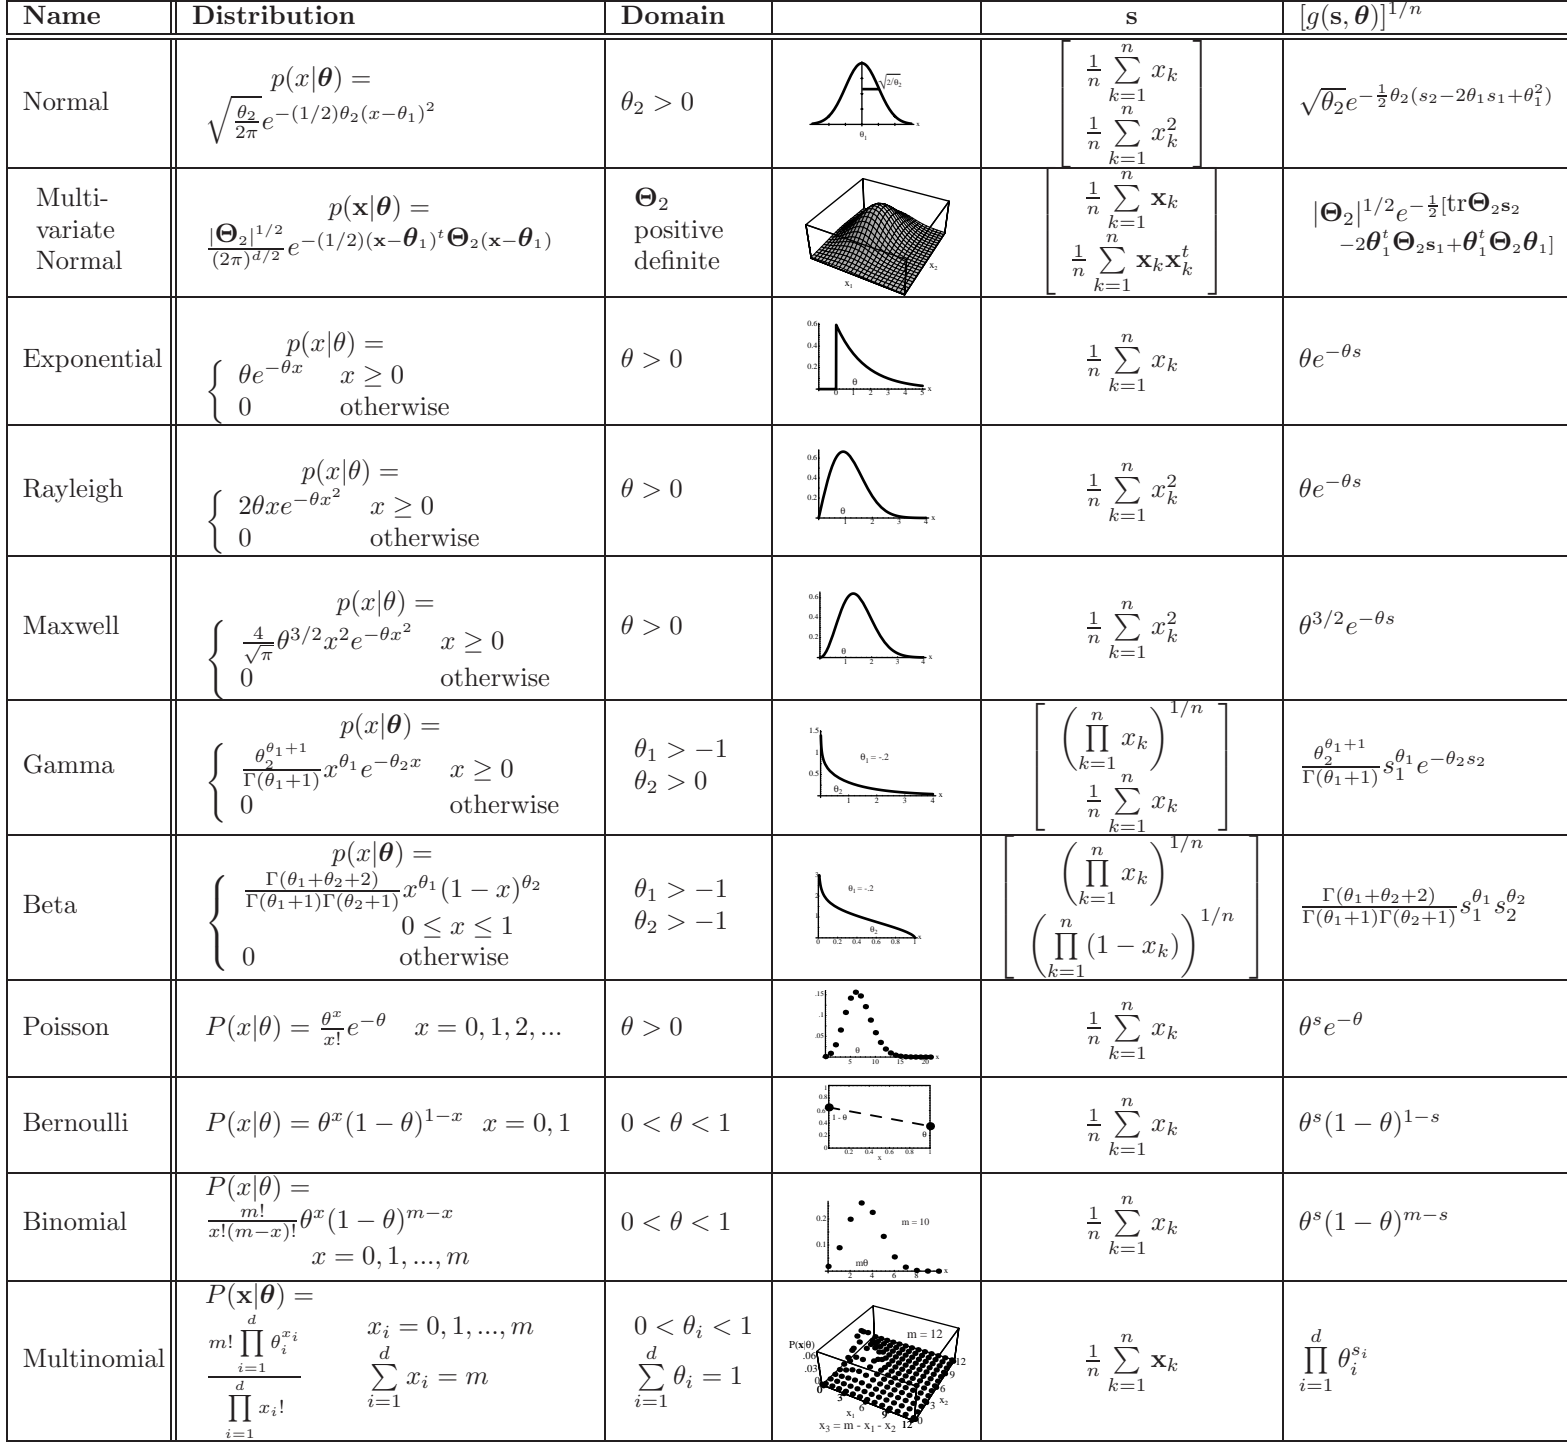 Name Distribution Domain s [g(s, θ)]^{1/n}
Normal
p(x|θ) =
\sqrt{\frac{θ_2}{2π}} e^{-(1/2)θ_2(x-θ_1)^2}
θ_2 > 0
\sqrt{2/θ_2}
x
θ_1
\frac{1}{n} \sum_{k=1}^{n} x_k
\frac{1}{n} \sum_{k=1}^{n} x_k^2
\sqrt{θ_2} e^{-\frac{1}{2}θ_2(s_2-2θ_1s_1+θ_1^2)}
Multi-
variate
Normal
p(x|θ) =
\frac{|Θ_2|^{1/2}}{(2π)^{d/2}} e^{-(1/2)(x-θ_1)^tΘ_2(x-θ_1)}
Θ_2
positive
definite
x_2
x_1
\frac{1}{n} \sum_{k=1}^{n} x_k
\frac{1}{n} \sum_{k=1}^{n} x_k x_k^t
|Θ_2|^{1/2} e^{-\frac{1}{2}[trΘ_2s_2
-2θ_1^tΘ_2s_1+θ_1^tΘ_2θ_1]}
Exponential
p(x|θ) =
θe^{-θx} x ≥ 0
0 otherwise
θ > 0
0.6
0.4
0.2
θ
0 1 2 3 4 5 x
\frac{1}{n} \sum_{k=1}^{n} x_k
θe^{-θs}
Rayleigh
p(x|θ) =
2θxe^{-θx^2} x ≥ 0
0 otherwise
θ > 0
0.6
0.4
0.2
θ
1 2 3 4 x
\frac{1}{n} \sum_{k=1}^{n} x_k^2
θe^{-θs}
Maxwell
p(x|θ) =
\frac{4}{\sqrt{π}} θ^{3/2} x^2 e^{-θx^2} x ≥ 0
0 otherwise
θ > 0
0.6
0.4
0.2
θ
1 2 3 4 x
\frac{1}{n} \sum_{k=1}^{n} x_k^2
θ^{3/2} e^{-θs}
Gamma
p(x|θ) =
\frac{θ_2^{θ_1+1}}{Γ(θ_1+1)} x^{θ_1} e^{-θ_2x} x ≥ 0
0 otherwise
θ_1 > -1
θ_2 > 0
1.5
1
0.5
θ_1 = -.2
θ_2
1 2 3 4 x
(\prod_{k=1}^{n} x_k)^{1/n}
\frac{1}{n} \sum_{k=1}^{n} x_k
\frac{θ_2^{θ_1+1}}{Γ(θ_1+1)} s_1^{θ_1} e^{-θ_2s_2}
Beta
p(x|θ) =
\frac{Γ(θ_1+θ_2+2)}{Γ(θ_1+1)Γ(θ_2+1)} x^{θ_1}(1 - x)^{θ_2}
0 ≤ x ≤ 1
0 otherwise
θ_1 > -1
θ_2 > -1
3
2
1
θ_1 = -.2
θ_2
0 0.2 0.4 0.6 0.8 1 x
(\prod_{k=1}^{n} x_k)^{1/n}
(\prod_{k=1}^{n} (1 - x_k))^{1/n}
\frac{Γ(θ_1+θ_2+2)}{Γ(θ_1+1)Γ(θ_2+1)} s_1^{θ_1} s_2^{θ_2}
Poisson
P(x|θ) = \frac{θ^x}{x!} e^{-θ} x = 0, 1, 2, ...
θ > 0
.15
.1
.05
θ
5 10 15 20 x
\frac{1}{n} \sum_{k=1}^{n} x_k
θ^s e^{-θ}
Bernoulli
P(x|θ) = θ^x(1 - θ)^{1-x} x = 0, 1
0 < θ < 1
1
0.8
0.6
0.4
0.2
0
1 - θ
θ
0.2 0.4 0.6 0.8 1
x
\frac{1}{n} \sum_{k=1}^{n} x_k
θ^s(1 - θ)^{1-s}
Binomial
P(x|θ) =
\frac{m!}{x!(m-x)!} θ^x(1 - θ)^{m-x}
x = 0, 1, ..., m
0 < θ < 1
0.2
0.1
m = 10
mθ
2 4 6 8 x
\frac{1}{n} \sum_{k=1}^{n} x_k
θ^s(1 - θ)^{m-s}
Multinomial
P(x|θ) =
\frac{m! \prod_{i=1}^{d} θ_i^{x_i}}{\prod_{i=1}^{d} x_i!}
x_i = 0, 1, ..., m
\sum_{i=1}^{d} x_i = m
0 < θ_i < 1
\sum_{i=1}^{d} θ_i = 1
P(x|θ)
.06
.03
0
m = 12
0 3 6 9 12
x_1
0 3 6 9 12
x_2
x_3 = m - x_1 - x_2
\frac{1}{n} \sum_{k=1}^{n} x_k
\prod_{i=1}^{d} θ_i^{s_i}